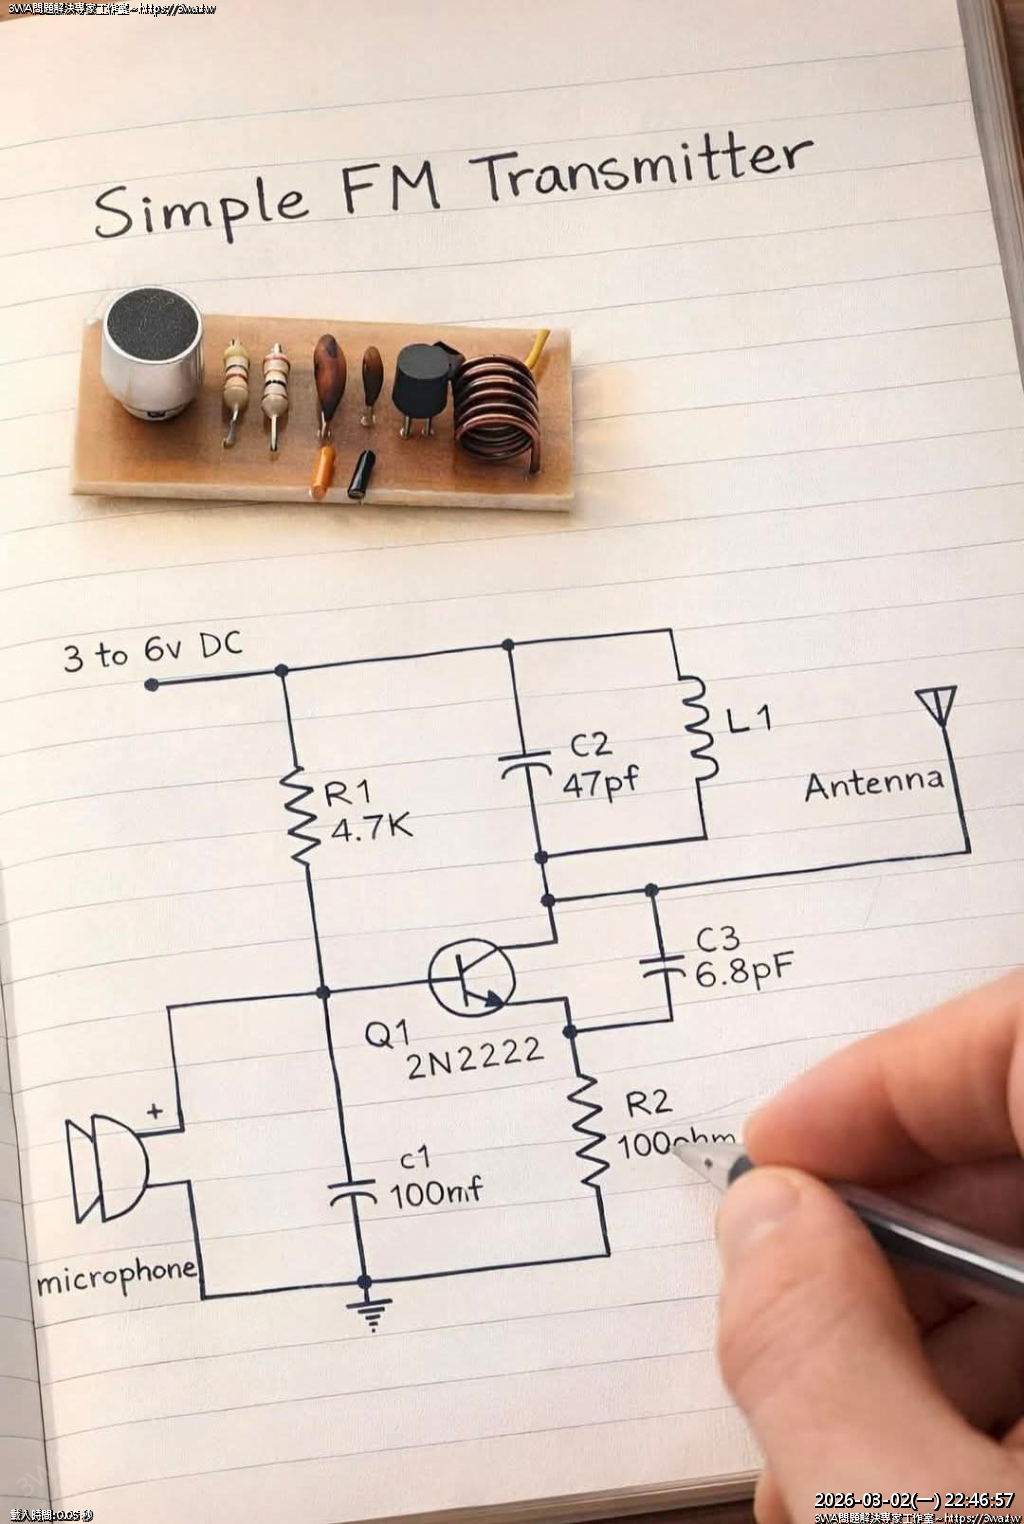 3WA問題解決專家工作室~https://3wa.tw
Simple FM Transmitter
3 to 6v DC
C2
47pf
L1
R1
4.7K
Antenna
C3
6.8pF
Q1
2N2222
+
R2
100ohm
c1
100mf
microphone
載入時間:0.05 秒
2026-03-02(一) 22:46:57
3WA問題解決專家工作室~https://3wa.tw